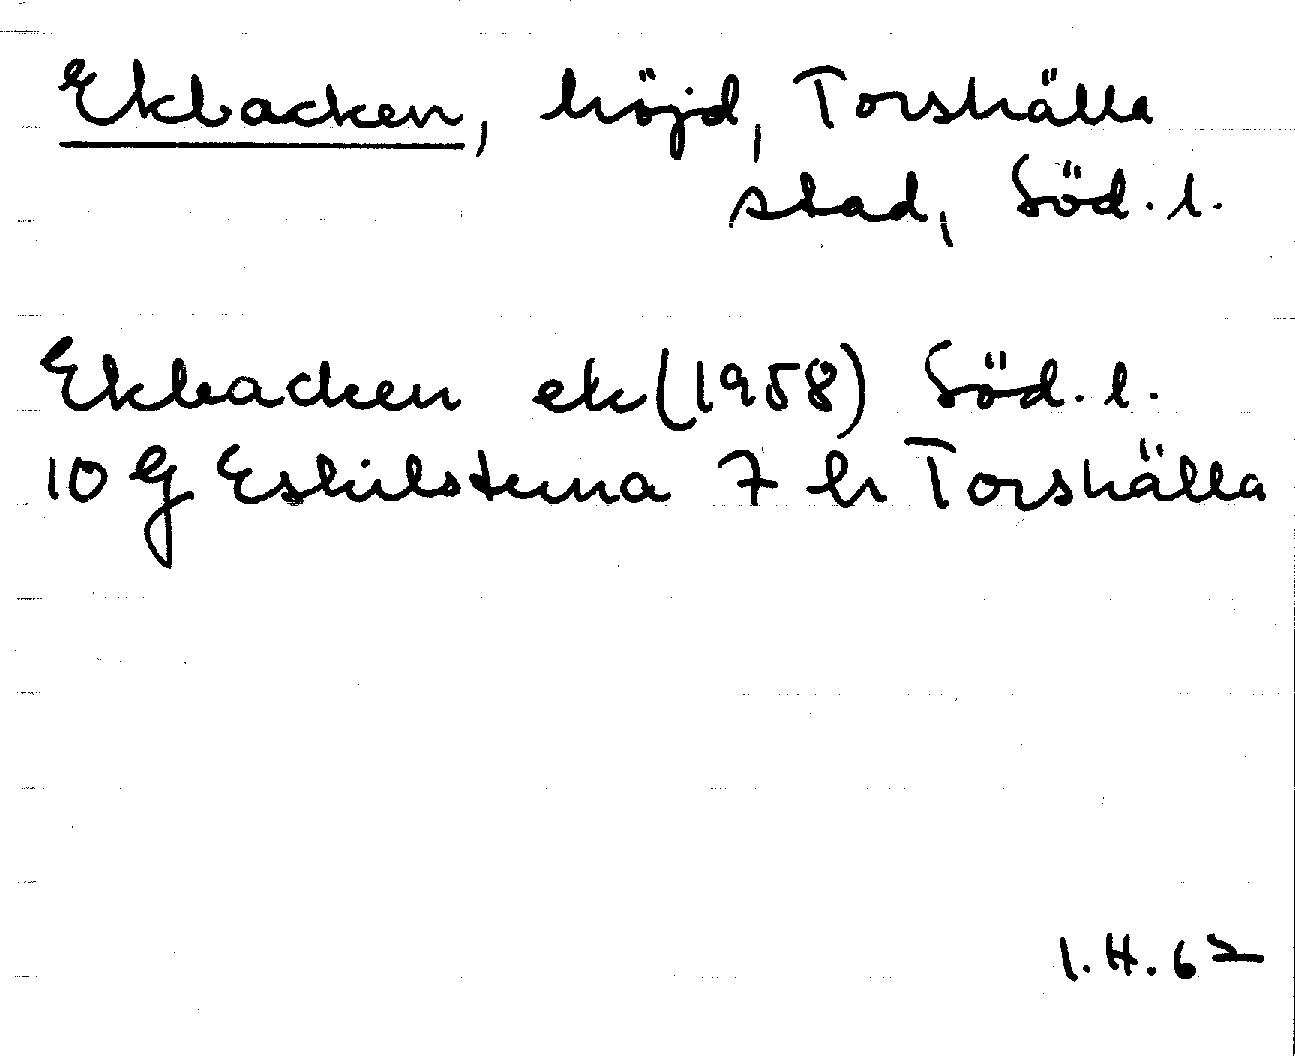 Ekbacken, höjd, Torshälla
stad, Söd. l.
Ekbacken ek (1958) Söd. l.
10 G Eskilstuna 7 h Torshälla
I.H. 62